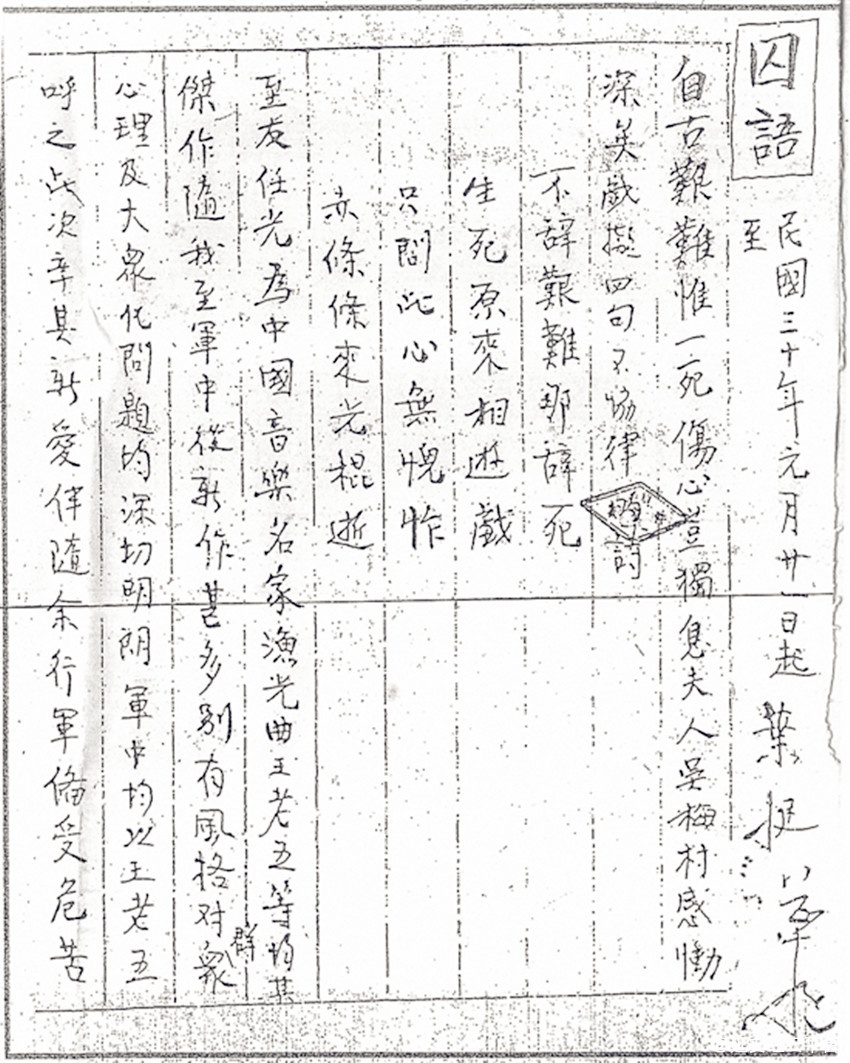 囚語
民國三十年元月廿一日起
至
葉挺
自古艱難惟一死傷心豈獨息夫人吳梅村感慟
深矣戲擬四句不協律
詩
不辞艱難那辞死
生死原來相遊戲
只問此心無愧怍
赤條條來光棍逝
至友任光為中國音樂名家漁光曲王老五等均其
傑作隨我至軍中後新作甚多別有風格对群衆
心理及大衆化問題均深切明朗軍中均以王老五
呼之此次率其新愛伴隨余行軍備受危苦